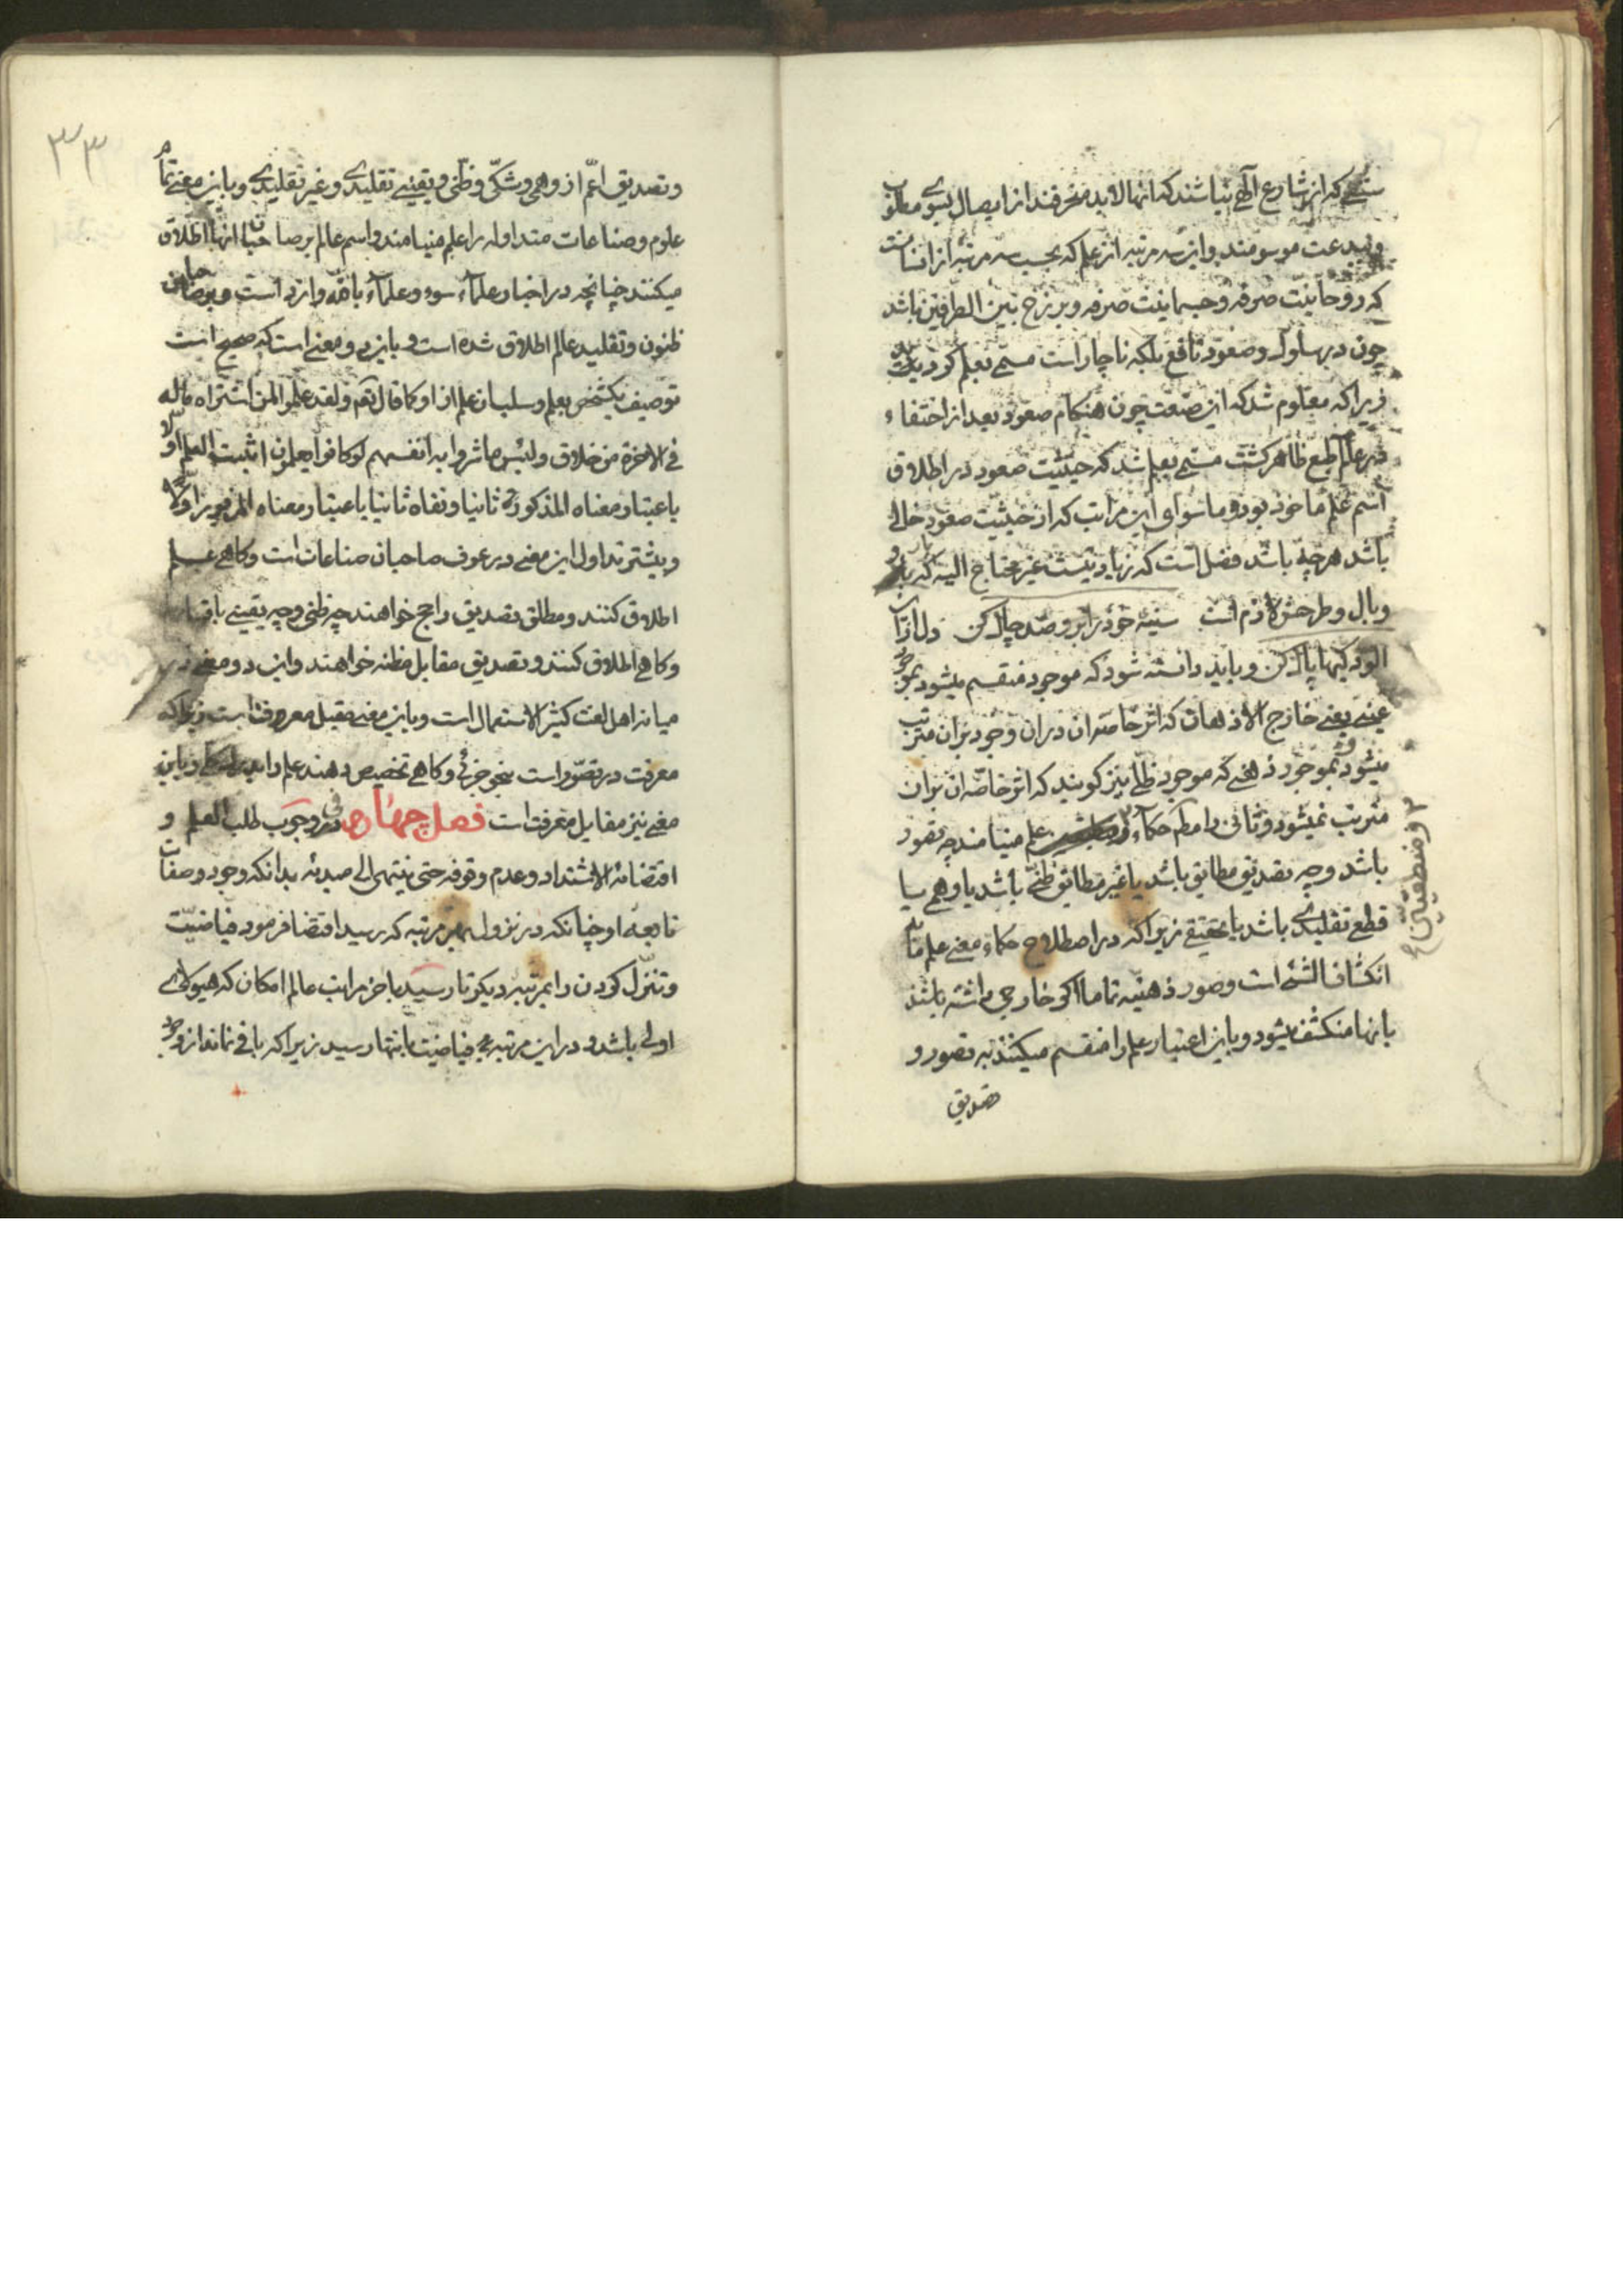 که از شارع الهی نباشند که انها لابد منحرفند از ایصال بسوی مطلوب
وببدعت موسومند واین سه مرتبه از علم که بحسب سه مرتبه از انسانست
که روحانیت صرفه وجسمانیت صرفه وبرزخ بین الطرفین باشد
چون در سلوک وصعود نافع بلکه ناچار است مسمی بعلم کردید
زیرا که معلوم شد که این صفت چون هنکام صعود بعد از اختفاء
در عالم طبع ظاهر کشت مسمی بعلم شد که حیثیت صعود در اطلاق
اسم علم ماخوذ بود وماسوای این مراتب که از حیثیت صعود خالی
باشد هرچه باشد فضل است که زیاد نیست غیر محتاج الیه که بار
وبال وطرحش لازم است سینهٔ خود را برو صد چاک کن دل از این
الودکیها پاک کن وباید دانسته شود که موجود منقسم میشود بموجود
عینی یعنی خارج الاذهان که اثر خاصه ان دران وجود بران مترتب
میشود وبموجود ذهنی که موجود ظلی نیز کویند که اثر خاصه ان بران
مترتب نمیشود وثانی را مطم حکماء علم مینامند چه تصور
ومنطقیین
باشد وچه تصدیق مطابق باشد یا غیر مطابق ظنی باشد یا وهمی یا
قطع تقلیدی باشد یا تحقیقی زیرا که در اصطلاح حکماء معنی علم ما به
انکشاف الشیٔ است وصور ذهنیه تماما اکر خارجی داشته باشند
بانها منکشف میشود وباین اعتبار علم را منقسم میکنند به تصور و
تصدیق
۳۳
وتصدیق اعم از وهمی وشکی وظنی ویقینی تقلیدی وغیر تقلیدی وباین معنی تمام
علوم وصناعات متداوله را علم مینامند واسم عالم بر صاحبان انها اطلاق
میکنند چنانچه در اخبار علماء سوء وعلماء بالله وارد است وبر صاحبان
ظنون وتقلید عالم اطلاق شده است وباین دو معنی است که صحیح است
توصیف یکشخص بعلم وسلب ان علم از او کما قال تعم ولقد علموا لمن اشتراه ماله
فی الاخرة من خلاق ولبئس ما شروا به انفسهم لو کانوا یعلمون اثبت العلم اولا
باعتبار معناه المذکور ثانیا ونفاه ثانیا باعتبار معناه المزبور اولا
وبیشتر تداول این معنی در عرف صاحبان صناعات است وکاهی علم
اطلاق کنند ومطلق تصدیق راجح خواهند چه ظنی وچه یقینی
وکاهی اطلاق کنند وتصدیق مقابل مظنه خواهند واین دو معنی در
میانه اهل لغت کثیر الاستعمال است وباین معنی مقابل معرفت است زیرا که
معرفت در تصور است بنحو جزئی وکاهی تخصیص دهند علم را وباین
معنی نیز مقابل معرفت است فصل چهارم در وجوب طلب العلم و
اقتضائه الاشتداد وعدم وقوفه حتی ینتهی الی مبدئه بدانکه وجود وصفات
تابعه او چنانکه در نزول بهر مرتبه که رسید اقتضا فرمود فیاضیت
وتنزل کردن را بمرتبه دیکر تا رسید باخر مراتب عالم امکان که هیولای
اولی باشد ودر این مرتبه فیاضیت بانتها رسید زیرا که باقی نماند از وجود